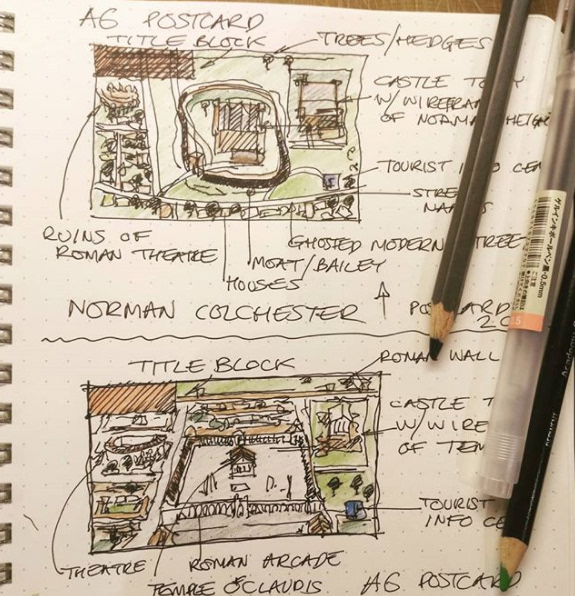 A6 POSTCARD
TITLE BLOCK
TREES/HEDGES
CASTLE TO Y
W/WIREFRA
OF NORMA HEIGH
TOURIST INFO CEN
STRE
NA
RUINS OF
ROMAN THEATRE
GHOSTED MODERN TREE
MOAT/BAILEY
HOUSES
NORMAN COLCHESTER
POSTCARD
TITLE BLOCK
ROMAN WALL
CASTLE T
W/WIRE
OF TEM
TOURIST
INFO CE
THEATRE
ROMAN ARCADE
TEMPLE OF CLAUDIS
A6 POSTCARD
ゲルインキボールペン
0.5mm